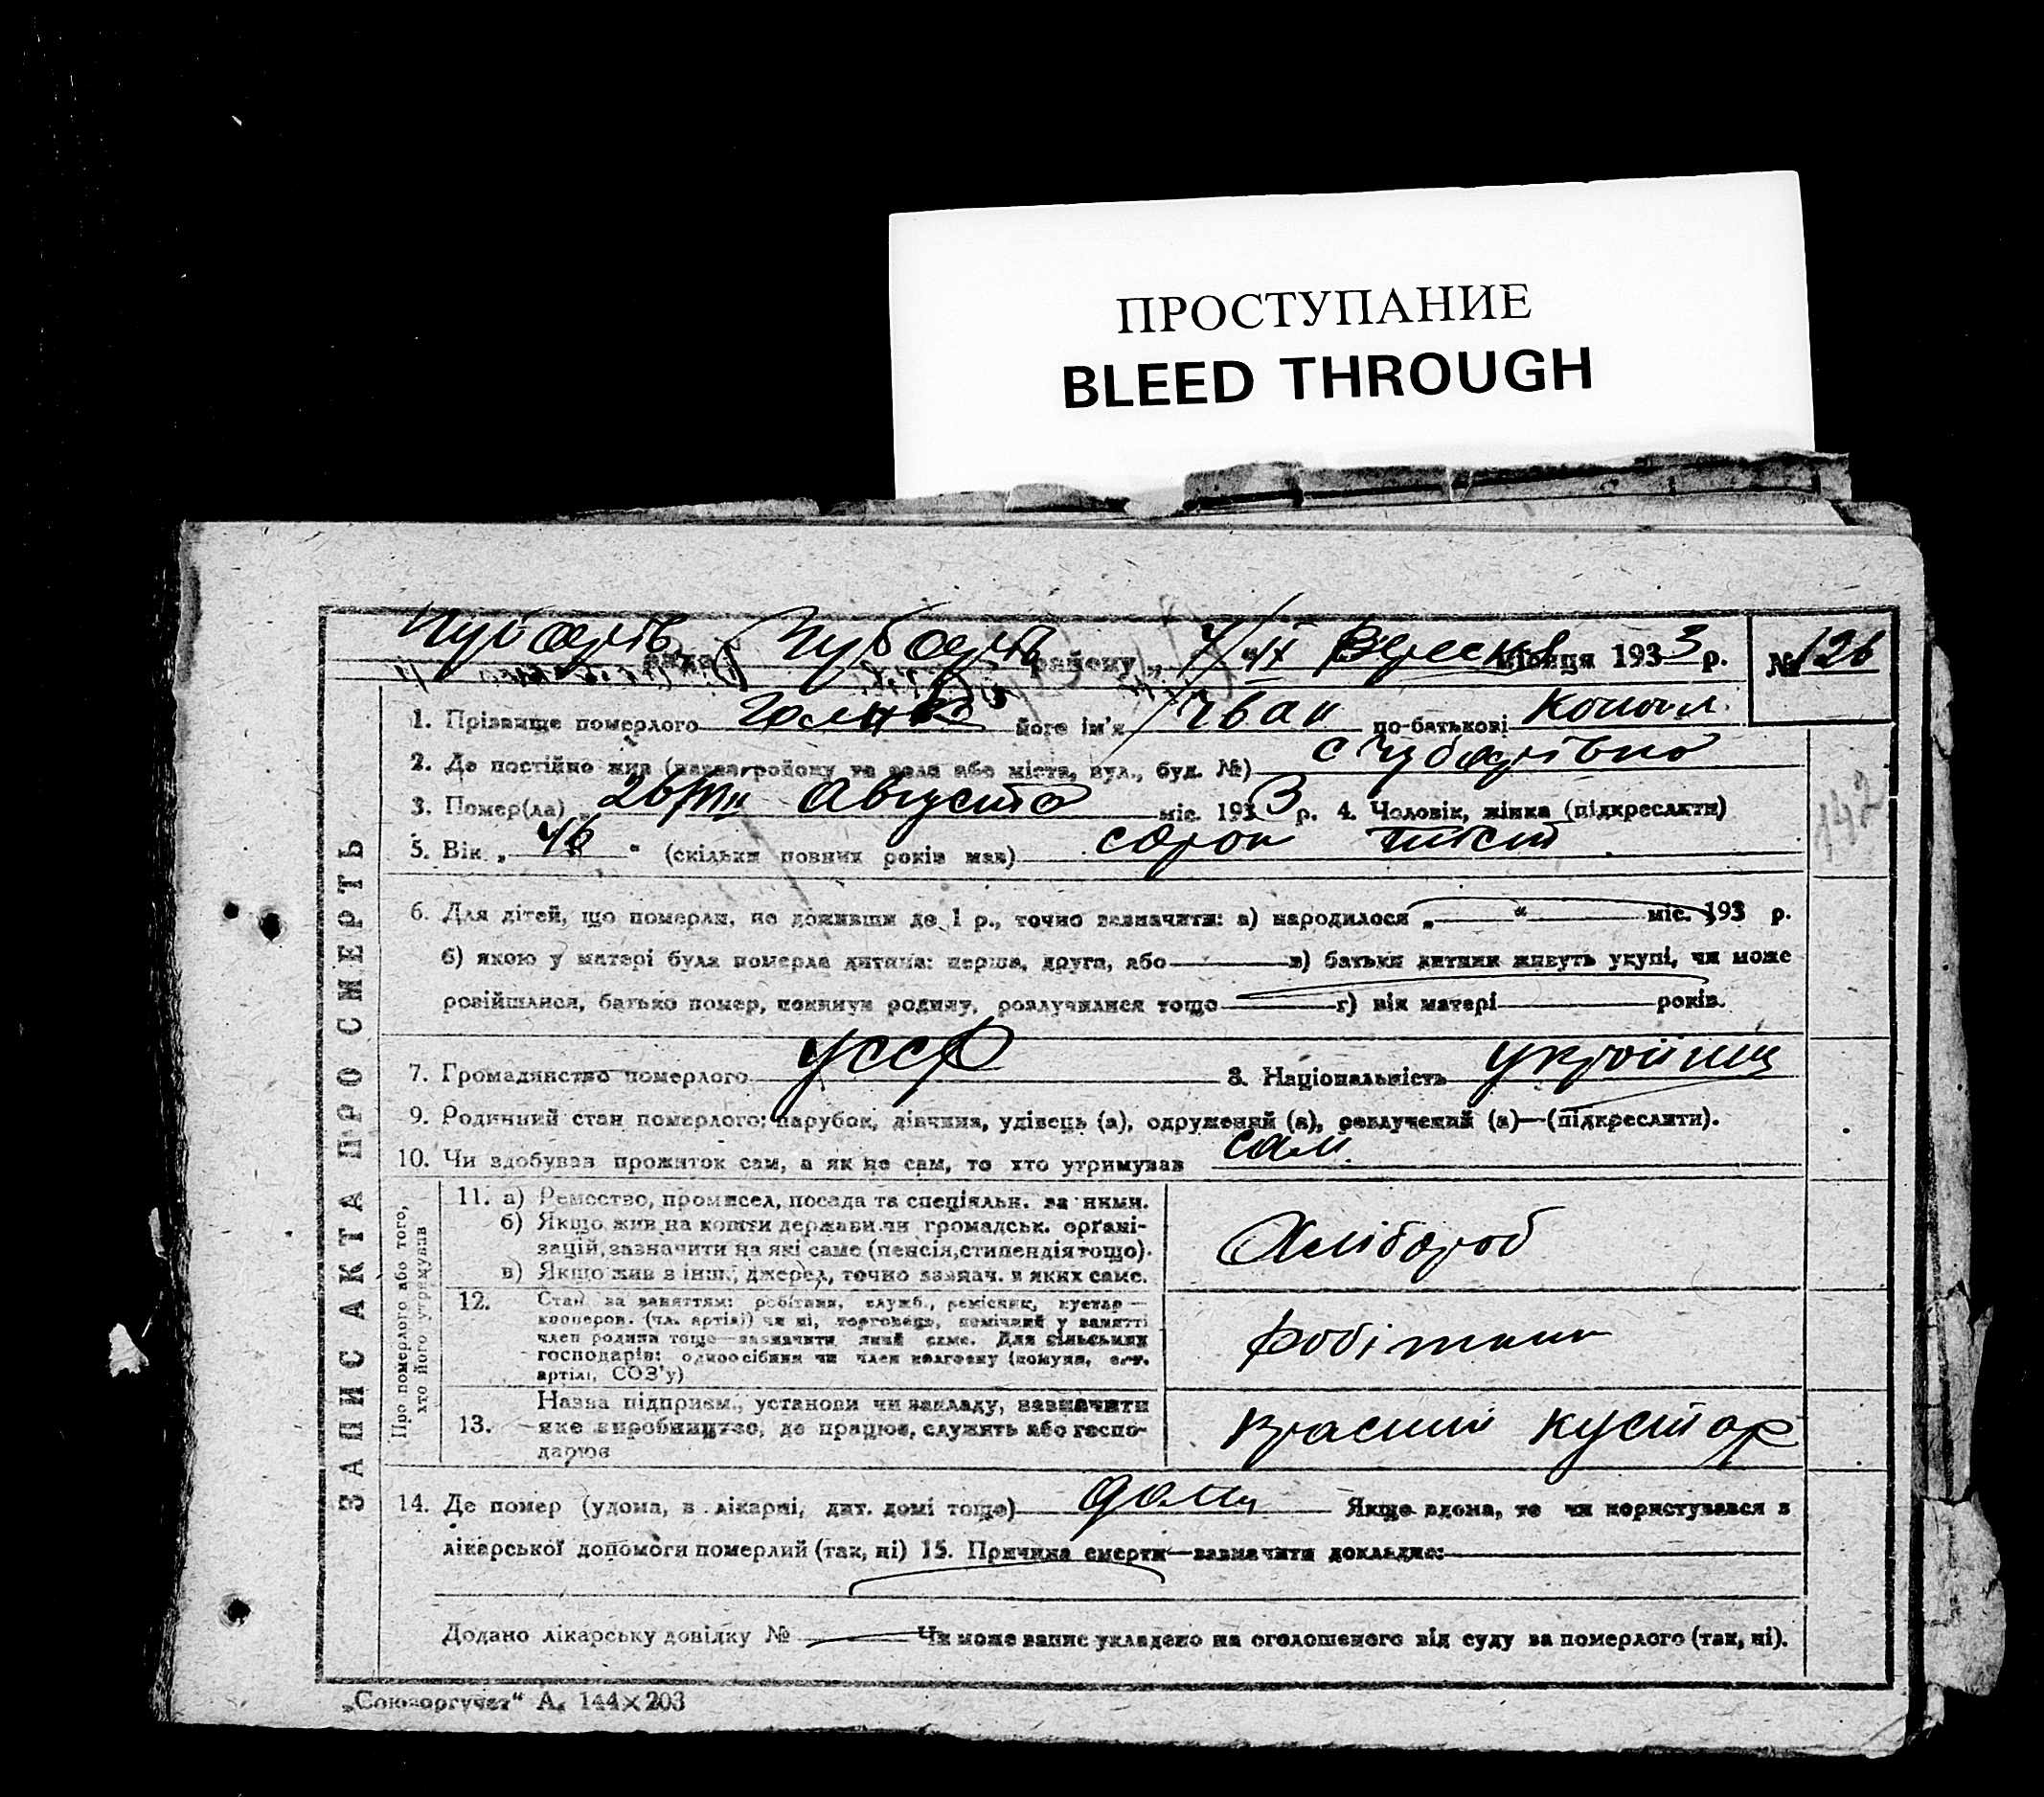 ПРОСТУПАНИЕ
BLEED THROUGH
району „ 7/IX Вересня місяця 1933 р. № 126
1. Прізвище померлого його ім'я Іван по-батькові
2. Де постійно жив (назва району та села або міста, вул., буд. №)
3. Помер(ла) „ 26/VIII Августа міс. 1933 р. 4. Чоловік, жінка (підкреслити)
5. Вік „ 46 “ (скільки повних років мав) сорок шість
142
6. Для дітей, що померли, не доживши до 1 р., точно зазначити: а) народилося „ “ міс. 193 р.
б) якою у матері була померла дитина: перша, друга, або в) батьки дитини живуть укупі, чи може
розійшлися, батько помер, покинув родину, розлучилися тощо г) вік матері років.
7. Громадянство померлого УССР 8. Національність україниц
9. Родинний стан померлого: парубок, дівчина, удівець (а), одружений (а), розлучений (а)—(підкреслити).
10. Чи здобував прожиток сам, а як не сам, то хто утримував сам
ЗАПИС АКТА ПРО СМЕРТЬ
Про померлого або того,
хто його утримував
11. а) Ремество, промисел, посада та спеціяльн. за ними.
б) Якщо жив на кошти держави чи громадськ. органі-
зацій, зазначити на які саме (пенсія, стипендія тощо).
в) Якщо жив з інш. джерел, точно зазнач. з яких саме.
Хлібороб
12. Стан за заняттям: робітник, служб., ремісник, кустар—
кооперов. (чл. артілі) чи ні, торговець, помічний у занятті
член родини тощо—зазначити який саме. Для сільських
господарів: одноосібник чи член колгоспу (комуна, с.-г.
артілі, СОЗ'у)
робітник
13. Назва підприєм., установи чи закладу, зазначити
яке виробництво, де працює, служить або госпо-
дарює
красний кустар
14. Де помер (удома, в лікарні, дит. домі тощо) дома Якщо вдома, то чи користувався з
лікарської допомоги померлий (так, ні) 15. Причина смерти—зазначити докладно:
Додано лікарську довідку № Чи може запис укладено на оголошеного від суду за померлого (так, ні).
„Союзоргучет“ А. 144×203